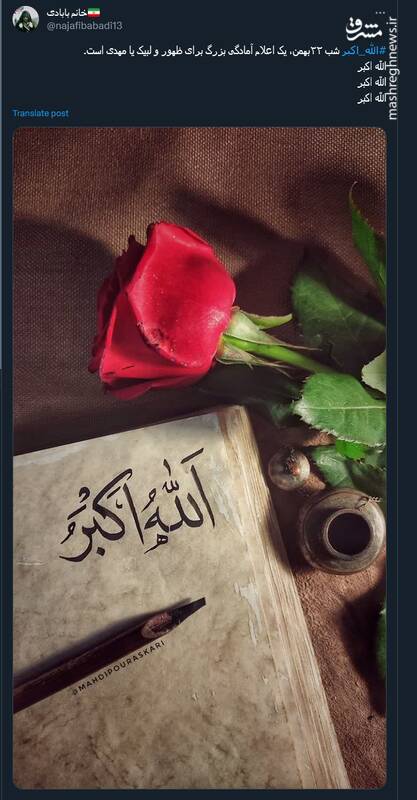 خانم بابادی
@najafibabadi13
...
مشرق
mashreghnews.ir
#الله_اکبر شب ۲۲بهمن، یک اعلام آمادگی بزرگ برای ظهور و لبیک یا مهدی است.
الله اکبر
الله اکبر
الله اکبر
Translate post
اَللّٰهُ اَکْبَرُ
@MAHDIPOURASKARI